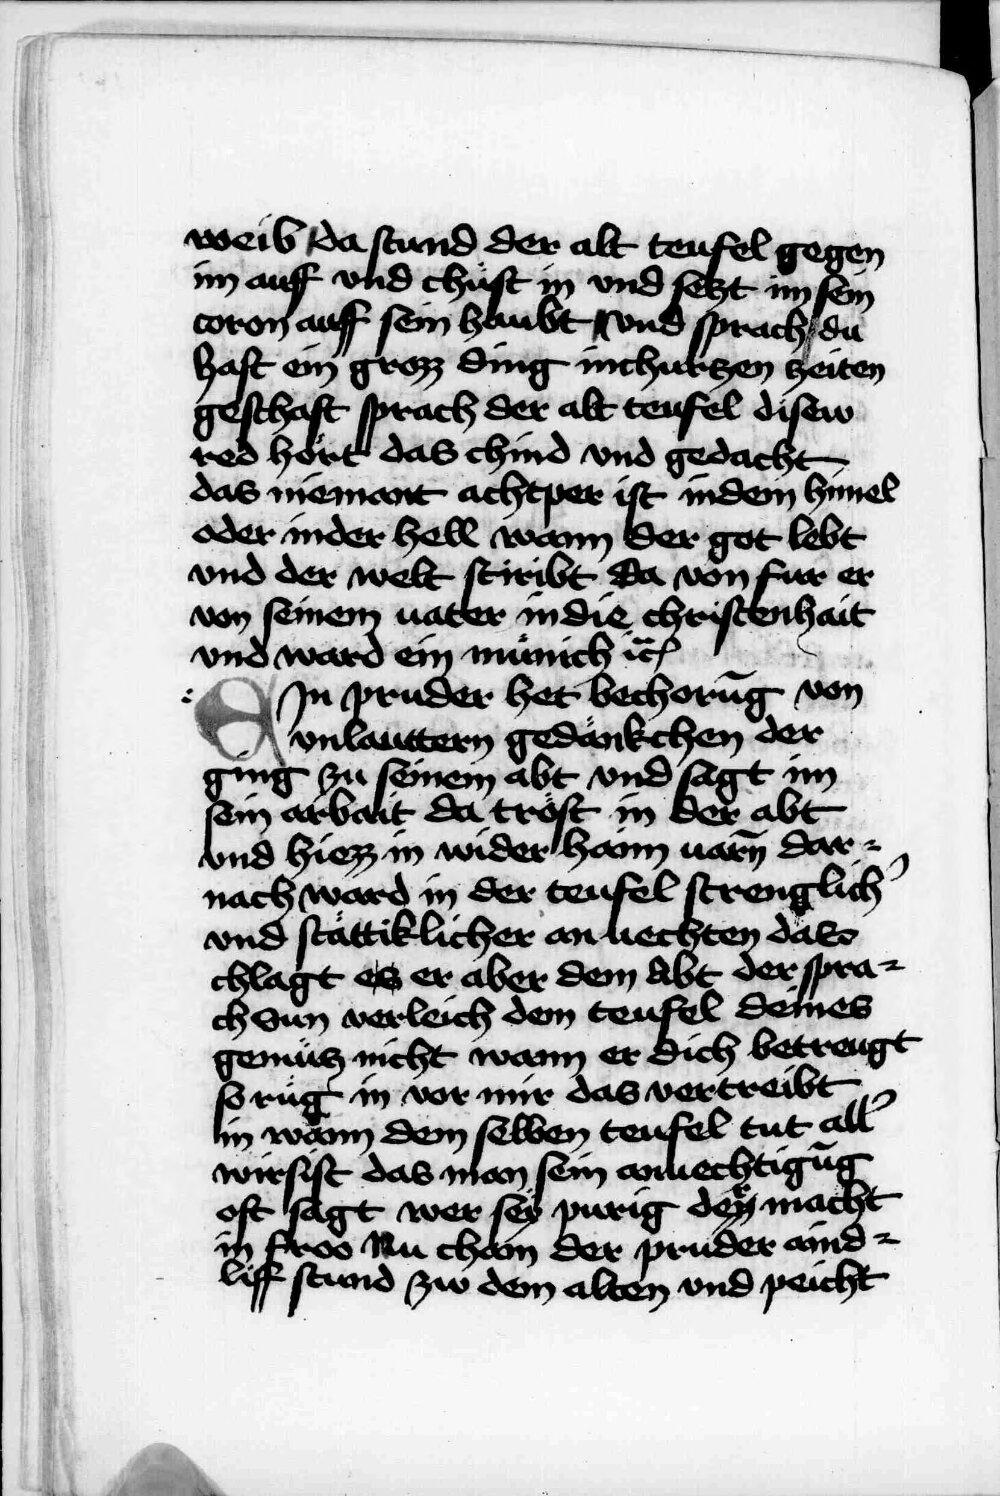 weib da stund der alt teufel gegen
im auff vnd chüst in vnd setzt im sein
coron auff sein haubt vnd sprach du
hast ein grozz ding inchurtzen tzeiten
geschaft sprach der alt teufel disew
red hört das chind vnd gedacht
das niemant achtper ist indem himel
oder inder hell wann der got lebt
vnd der welt stiribt da von fur er
von seinem uater indie christenhait
vnd ward ein münich
Ein pruder het bechorūg von
vnlauttern gedänkchen der
ging zu seinem abt vnd sagt im
sein arbait da tröst in der abt
vnd hiezz in wider haim uarn̄ dar=
nach ward in der teufel strenglich
vnd stättiklicher an uechten das
chlagt es er aber dem Abt der spra=
ch Sun verleich dem teufel deines
gemütz nicht wann er dich betreugt
so rüg in vor mir das vertreibt
in wann dem selben teufel tut all
wirsist das man sein anuechtigūg
oft sagt wer sey purig macht
in froo Nu cham der pruder aind=
liff stund zw dem alten vnd peicht